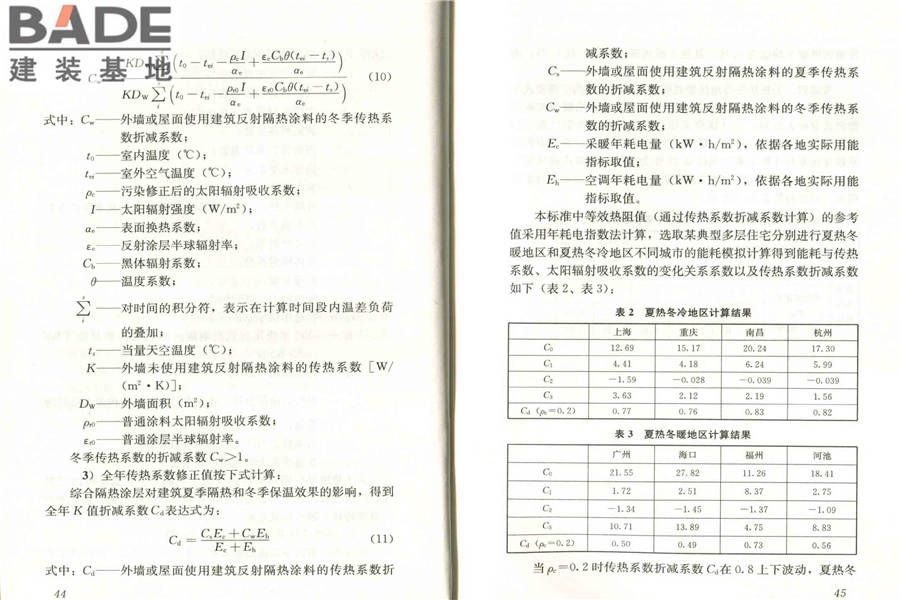 BADE
建装基地
KD ∑ (t₀ − tₑᵢ − ρcI/αe + εcCbθ(tₑᵢ − ts)/αe)
KDw ∑ (t₀ − tₑᵢ − ρt0I/αe + εt0Cbθ(tₑᵢ − ts)/αe) (10)
式中：Cw——外墙或屋面使用建筑反射隔热涂料的冬季传热系
数折减系数；
t₀——室内温度（℃）；
tₑᵢ——室外空气温度（℃）；
ρc——污染修正后的太阳辐射吸收系数；
I——太阳辐射强度（W/m²）；
αe——表面换热系数；
εc——反射涂层半球辐射率；
Cb——黑体辐射系数；
θ——温度系数；
∑——对时间的积分符，表示在计算时间段内温差负荷
的叠加；
ts——当量天空温度（℃）；
K——外墙未使用建筑反射隔热涂料的传热系数［W/
（m²·K）］；
Dw——外墙面积（m²）；
ρt0——普通涂料太阳辐射吸收系数；
εt0——普通涂层半球辐射率。
冬季传热系数的折减系数Cw>1。
3）全年传热系数修正值按下式计算：
综合隔热涂层对建筑夏季隔热和冬季保温效果的影响，得到
全年K值折减系数Cd表达式为：
Cd = (CsEc+CwEh)/(Ec+Eh) (11)
式中：Cd——外墙或屋面使用建筑反射隔热涂料的传热系数折
44
减系数；
Cs——外墙或屋面使用建筑反射隔热涂料的夏季传热系
数的折减系数；
Cw——外墙或屋面使用建筑反射隔热涂料的冬季传热系
数的折减系数；
Ec——采暖年耗电量（kW·h/m²），依据各地实际用能
指标取值；
Eh——空调年耗电量（kW·h/m²），依据各地实际用能
指标取值。
本标准中等效热阻值（通过传热系数折减系数计算）的参考
值采用年耗电指数法计算，选取某典型多层住宅分别进行夏热冬
暖地区和夏热冬冷地区不同城市的能耗模拟计算得到能耗与传热
系数、太阳辐射吸收系数的变化关系系数以及传热系数折减系数
如下（表2、表3）：
表2 夏热冬冷地区计算结果
上海 重庆 南昌 杭州
C₀ 12.69 15.17 20.24 17.30
C₁ 4.41 4.18 6.24 5.99
C₂ −1.59 −0.028 −0.039 −0.039
C₃ 3.63 2.12 2.19 1.56
Cd（ρc=0.2） 0.77 0.76 0.83 0.82
表3 夏热冬暖地区计算结果
广州 海口 福州 河池
C₀ 21.55 27.82 11.26 18.41
C₁ 1.72 2.51 8.37 2.75
C₂ −1.34 −1.45 −1.37 −1.09
C₃ 10.71 13.89 4.75 8.83
Cd（ρc=0.2） 0.50 0.49 0.73 0.56
当ρc=0.2时传热系数折减系数Cd在0.8上下波动，夏热冬
45